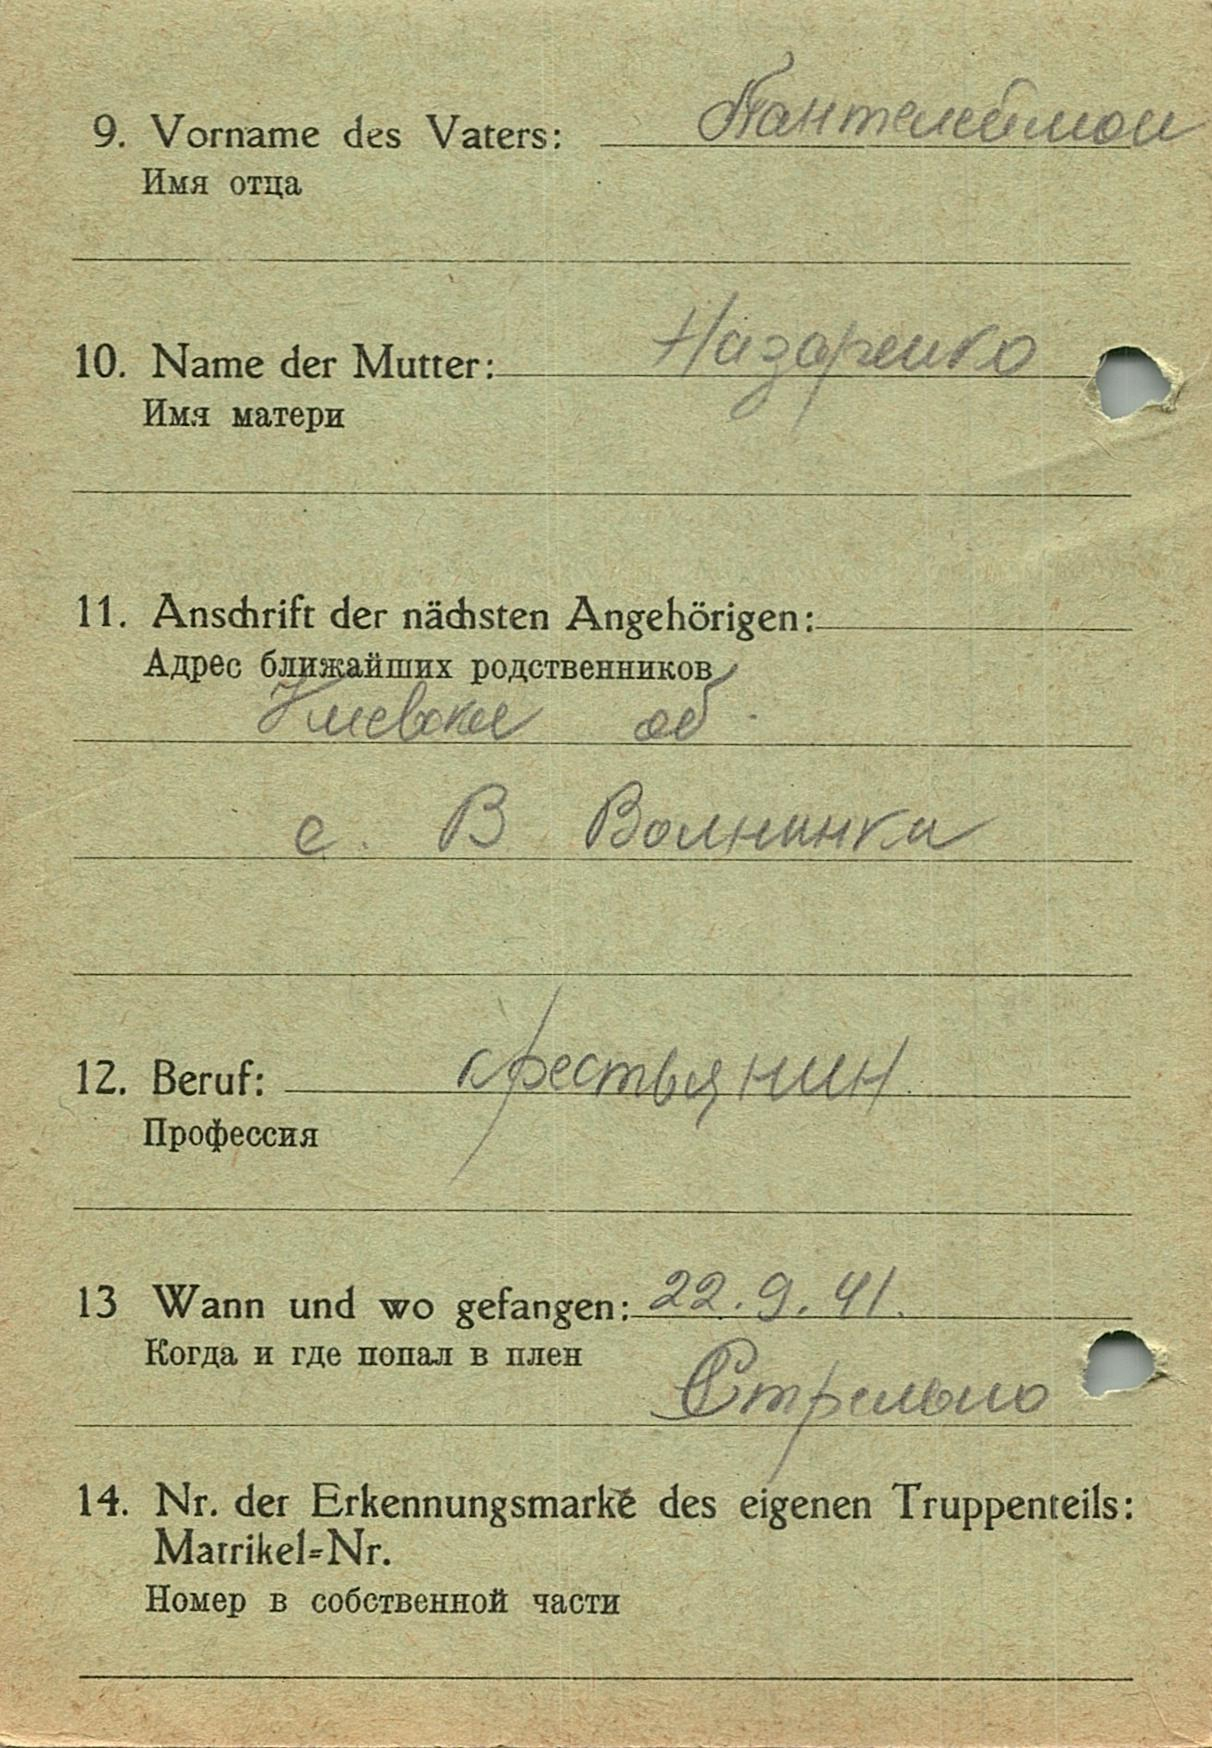 9. Vorname des Vaters: Пантелеймон
Имя отца
10. Name der Mutter: Назаренко
Имя матери
11. Anschrift der nächsten Angehörigen:
Адрес ближайших родственников
Киевская об.
с. В Волнянки
12. Beruf: крестьянин
Профессия
13 Wann und wo gefangen: 22.9.41.
Когда и где попал в плен
Стрельно
14. Nr. der Erkennungsmarke des eigenen Truppenteils:
Matrikel=Nr.
Номер в собственной части